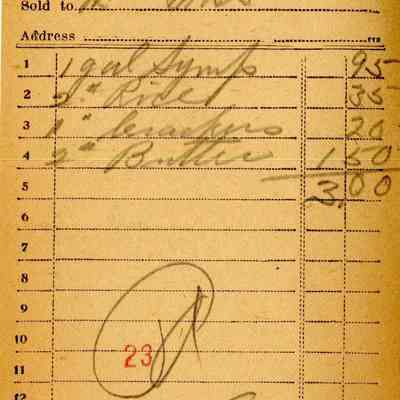 Sold to
Address
1 1 gal Syrup 95
2 2 " Rice 35
3 1 " Crackers 20
4 2 " Butter 1 50
5 3.00
6
7
8
9
10
23
11
12